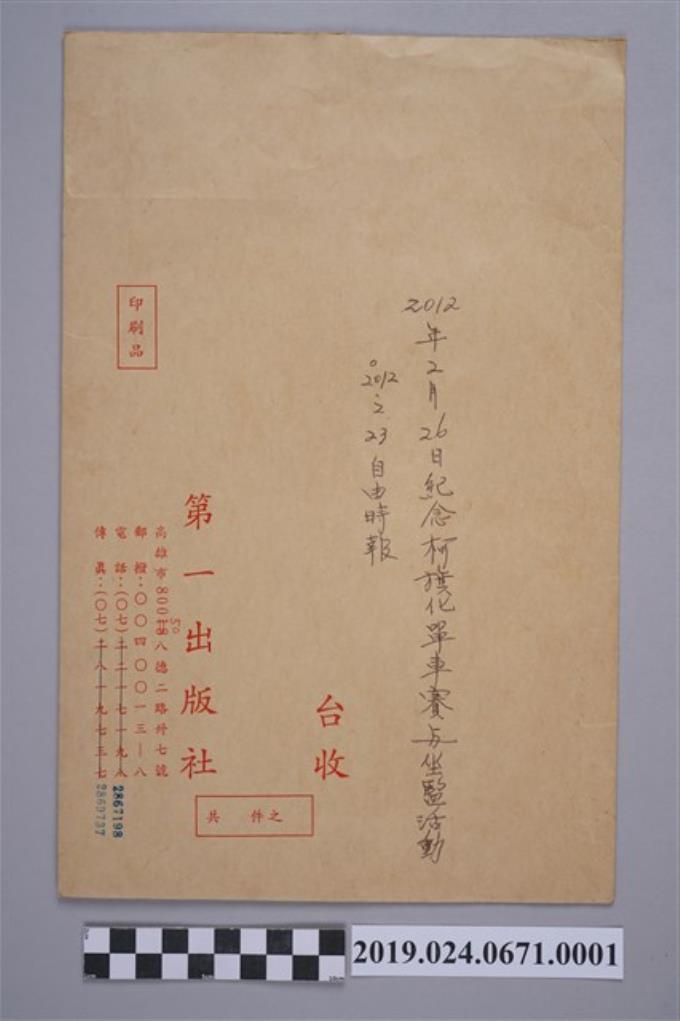 2012年2月26日紀念柯旗化單車賽与坐監活動
。2012.2.23自由時報
台收
印刷品
第一出版社
高雄市800八德二路卅七號
50
郵撥:〇〇四〇〇一三—八
電話:(〇七)二二一七一九八
2867198
傳真:(〇七)二八一九七三七
2869737
共 件之
2019.024.0671.0001